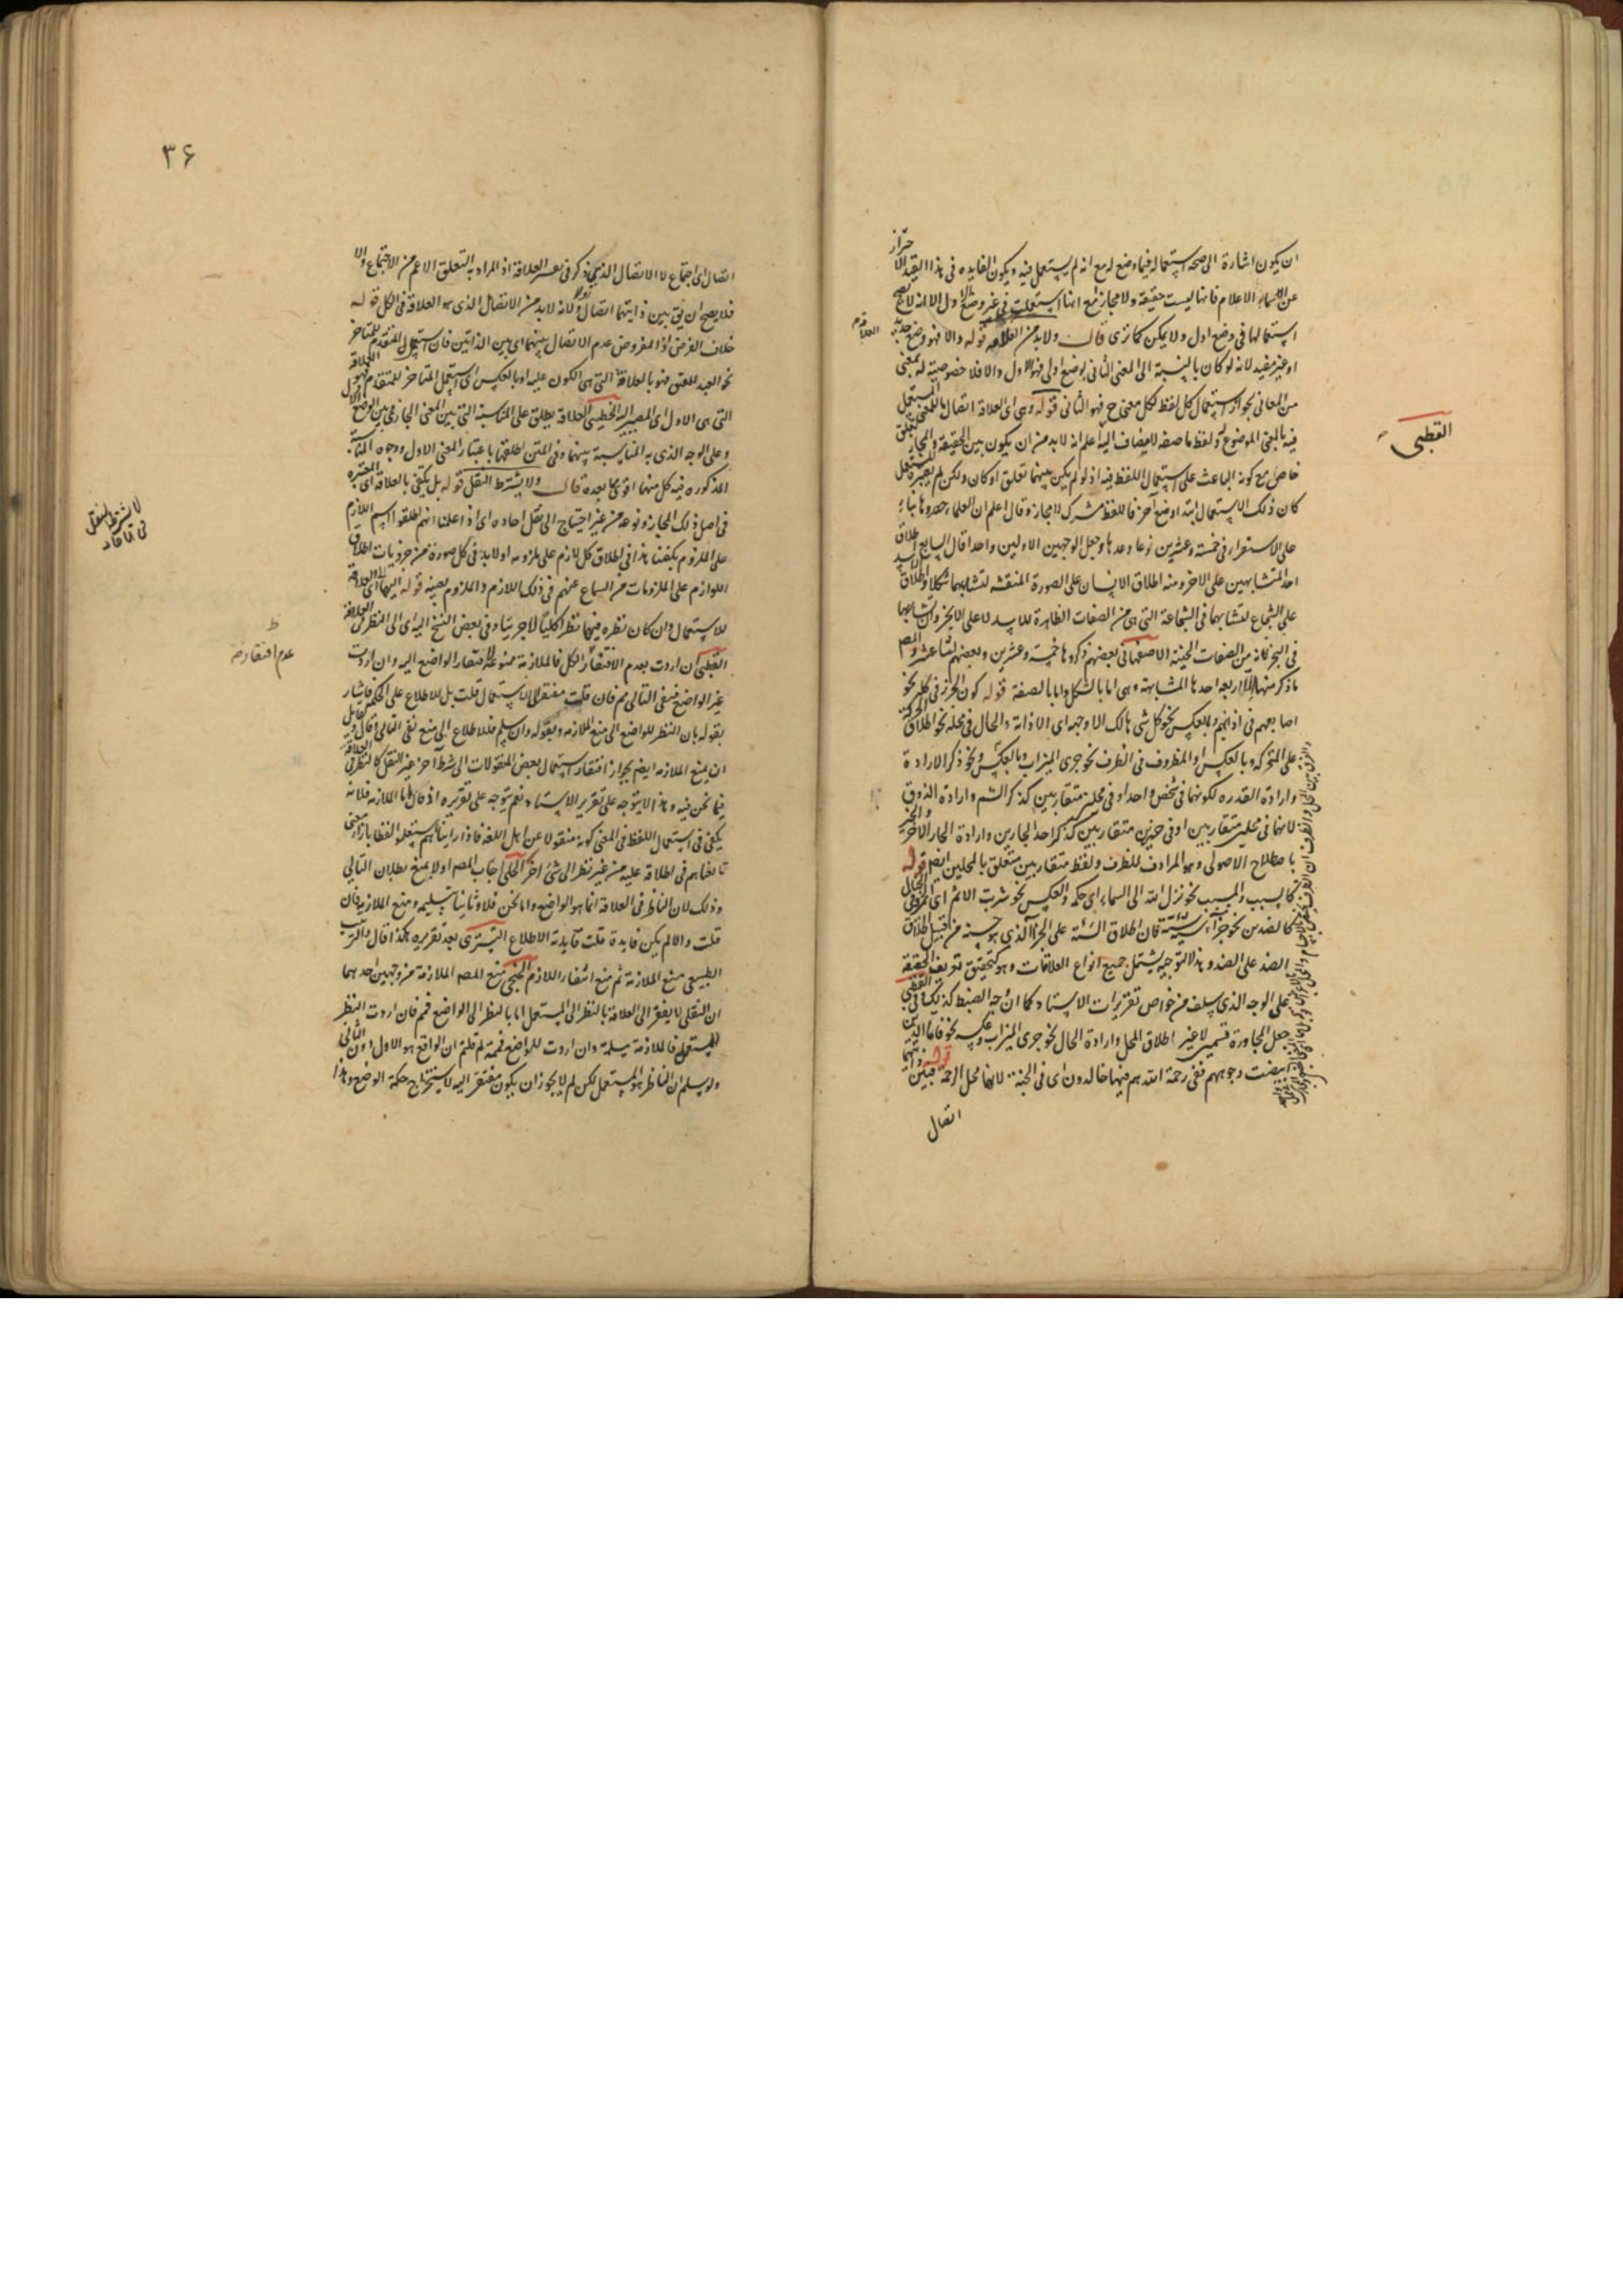 ان يكون اشارة الى صحة استعماله فيما وضع له مع انه لم يستعمل فيه ويكون الفايده فى هذا القيد الاحتراز
عن الاسماء الاعلام فانها ليست حقيقة ولا مجازا مع انها استعملت فى غير وضع اول الا انه لا يصح
استعمالها فى وضع اول ولا يمكن كما ترى قال ولا بد من العلاقه قوله والا فهو وضع جديد
العلاقه
او غير مفيد لانه لو كان بالنسبة الى المعنى الثانى بوضع اولى فهو الاول والا فلا خصوصية له بمعنى
من المعانى بجواز استعمال كل لفظ لكل معنى ح فهو الثانى قوله وهى اى العلاقة اتصال للمعنى المستعمل
فيه بالمعنى الموضوع له ولفظ ما صفه لا يضاف اليه اعلم انه لا بد من ان يكون بين الحقيقة والمجاز تعلق
القطبى
خاص مع كونه الباعث على استعمال اللفظ فيه اذ لو لم يكن بينهما تعلق او كان ولكن لم يعتبره المستعمل
كان ذلك الاستعمال ابتداء وضع آخر فاللفظ مشترك لا مجاز وقال اعلم ان العلماء حصروها بناء
على الاستقراء فى خمسة وعشرين نوعا وعدها وجعل الوجهين الاولين واحدا قال السابع اطلاق
احد المتشابهين على الاخر ومنه اطلاق الانسان على الصورة المنقشه لتشابههما شكلا واطلاق الاسد
على الشجاع لتشابههما فى الشجاعة التى هى من الصفات الظاهرة للاسد لا على الابخر وان تشابها
فى البخر فانه من الصفات الخفية الاصفهانى بعضهم ذكروها خمسة وعشرين وبعضهم اثنا عشر والمص
ما ذكر منها الا اربعة احدها المشابهة وهى اما بالشكل واما بالصفة قوله كون الجزء فى كله نحو
اصابعهم فى اذانهم وبالعكس نحو كل شى هالك الا وجهه اى الا ذاته والحال فى محله نحو اطلاق الحركة
على المتحركة وبالعكس والمظروف فى الظرف نحو جرى الميزاب وبالعكس ونحو ذكر الارادة
وارادة القدره لكونهما فى شخص واحد او فى محلين متقاربين كذكر الشم وارادة الذوق
لانهما فى محلين متقاربين او فى حيزين متقاربين كذكر احد الجارين وارادة الجار الاخر
باصطلاح الاصولى وهو المرادف للظرف ولفظ متقاربين متعلق بالمحلين ايضا قوله
كالسبب والمسبب نحو نزل الله الى السماء اى حكمه والعكس نحو شربت الاثم اى الخمر
كالضدين نحو جزاء سيئة سيئة فان اطلاق السيئة على الجزاء الذى هو حسنة من قبيل اطلاق
الضد على الضد وهذا التوجيه يشتمل جميع انواع العلاقات وهو كتحقيق تعريف الحقيقة
على الوجه الذى سلف من خواص تقريرات الاستاد كما ان وجه الضبط كذلك القطبى
جعل المجاورة قسمين لا غير اطلاق المحل وارادة الحال نحو جرى الميزاب وعكسه نحو فاما الذين
ابيضت وجوههم ففى رحمة الله هم فيها خالدون اى فى الجنة لانها محل الرحمة قوله
اتصال
٣۶
اتصال اى اجتماع لا الاتصال الذى ذكر فى تفسير العلاقة اذ المراد به التعلق الاعم من الاجتماع والا
فلا يصح ان يق بين ذاتيهما اتصال ولانه لا بد من الاتصال الذى هو العلاقة فى الكل قوله
خلاف الفرض اذ المفروض عدم الاتصال بينهما اى بين الذاتين فان استعمل المتقدم للمتاخر
نحو العبد للمعتق فهو بالعلاقة التى هى الكون عليه او بالعكس اى استعمل المتاخر للمتقدم فهو العلاقة
التى هى الاول اى المصير اليه الخطيبى العلاقة يطلق على المناسبة التى بين المعنى المجازى وبين الوضع الاول
وعلى الوجه الذى به المناسبة بينهما وفى المتن اطلقها باعتبار المعنى الاول ووجوه المناسبة
المذكوره فيه كل منها اقوى مما بعده قال ولا يشترط النقل قوله بل يكتفى بالعلاقة اى المعتبره
لا يشترط النقل فى الآحاد
فى اصل ذلك المجاز ونوعه من غير احتياج الى نقل احاده اى اذا علمنا انهم اطلقوا اسم اللازم
على الملزوم يكفينا هذا فى اطلاق كل لازم على ملزومه او لا بد فى كل صورة من جزئيات اطلاق
اللوازم على الملزومات من السماع عنهم فى ذلك اللازم والملزوم بعينه قوله اليها اى العلاقة
للاستعمال وان كان نظره فيها نظرا كليا لا جزئيا وفى بعض النسخ اليه اى الى النظر فى العلاقة
عدم افتقاره
القطبى ان اردت بعدم الافتقار الكل فالملازمة ممنوعة لافتقار الواضع اليه وان اردت
غير الواضع فنفى التالى مم فان قلت مفتقر الى الاستعمال قلت بل للاطلاع على الحكمة فاشار
بقوله بان النظر للواضع الى منع الملازمه وبقوله وان سلم فللاطلاع الى منع نفى التالى
ان يمنع الملازمه ايضا بجواز افتقار استعمال بعض المنقولات الى شرط آخر غير النقل كالنظر فى العلاقة
فيما نحن فيه وهذا لا يتوجه على تقرير الاستاد نعم يتوجه على تقريره اذ قال اما الملازمه فلانه
يكفى فى استعمال اللفظ فى المعنى كونه منقولا عن اهل اللغه فاذا راينا هم يستعملون لفظا بازاء معنى
تابعناهم فى اطلاقه عليه من غير نظر الى شئ اخر الحلى اجاب المصه اولا بمنع بطلان التالى
وذلك لان الناظر فى العلاقة انما هو الواضع واما نحن فلا وثانيا بتسليمه ومنع الملازمه فان
قلت والا لم يكن فايدة قلت فايدته الاطلاع التسترى بعد تقريره هكذا قال والترتيب
الطبيعى منع الملازمة ثم منع انتفاء اللازم الخنجى منع المصه الملازمة من وجهين احدهما
ان النقلى لا يفتقر الى العلاقة بالنظر الى المستعمل اما بالنظر الى الواضع فمم فان اردت النظر
للمستعمل فالملازمة مسلمة وان اردت للواضع فممة لم قلتم ان الواقع هو الاول دون الثانى
ولو سلم ان الناظر هو المستعمل لكن لم لا يجوز ان يكون مفتقر اليه لاستخراج حكمة الوضع وهذا